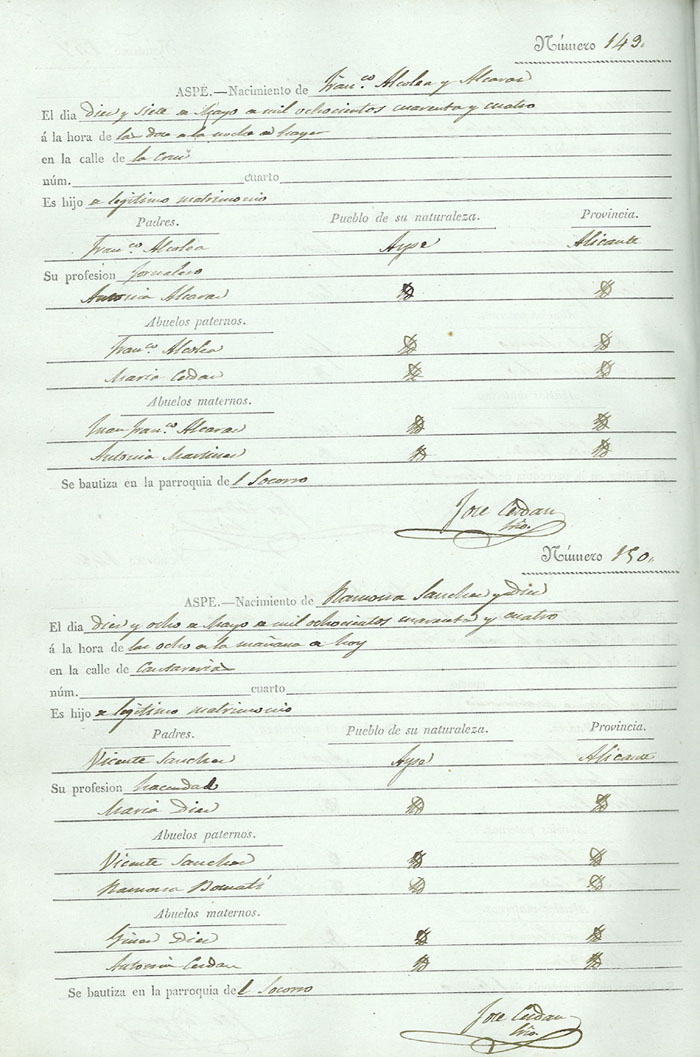 Número 149.
ASPE.—Nacimiento de Fran.co Alcolea y Alcaraz
El dia diez y siete de Mayo de mil ochocientos cuarenta y cuatro
á la hora de las doce de la noche de hayer
en la calle de la Cruz
núm. cuarto
Es hijo de legitimo matrimonio
Padres. Pueblo de su naturaleza. Provincia.
Fran.co Alcolea Aspe Alicante
Su profesion Jornalero
Antonia Alcaraz
Abuelos paternos.
Fran.co Alcolea
Maria Cerdan
Abuelos maternos.
Juan Fran.co Alcaraz
Antonia Martinez
Se bautiza en la parroquia del Socorro
Jose Cerdan
Srio.
Número 150.
ASPE.—Nacimiento de Ramona Sanchez y Diez
El dia diez y ocho de Mayo de mil ochocientos cuarenta y cuatro
á la hora de las ocho de la mañana de hoy
en la calle de Cantareria
núm. cuarto
Es hijo de legitimo matrimonio
Padres. Pueblo de su naturaleza. Provincia.
Vicente Sanchez Aspe Alicante
Su profesion
Maria Diez
Abuelos paternos.
Vicente Sanchez
Ramona
Abuelos maternos.
Gines Diez
Antonia Cerdan
Se bautiza en la parroquia del Socorro
Jose Cerdan
Srio.